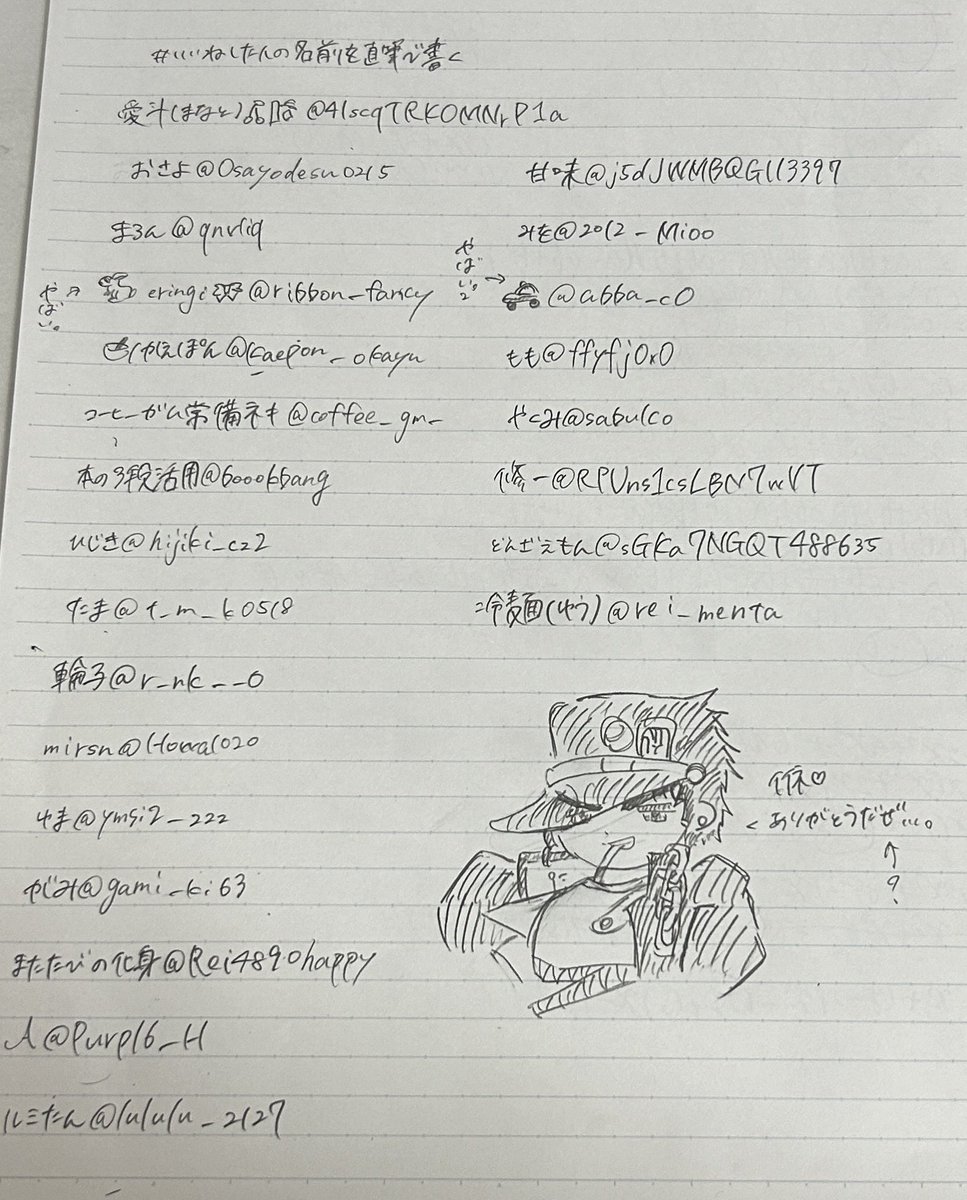 #いいねした人の名前を直筆で書く
愛斗(まなと) @41scqTRKOMNrP1a
おさよ@Osayodesu0215
まろん@qnvliq
やばい。→ eringi @ribbon_fancy
かえぽん@kaepon_okayu
コーヒーガム常備ネキ@coffee_gm_
本の3段活用@boookbang
ひじき@hijiki_cz2
たま@t_m_k0518
輪子@r_nk__0
mirsn@Howal020
ゆま@ymsi2_222
がみ@gami_ki63
またたびの化身@Rei4890happy
人@Purpl6_H
ルミたん@lulula_2127
甘味@j5dJWMBQGll3397
みを@2012_Mioo
やばい。2→ @abba_c0
もも@ffyfj0x0
やくみ@sabulco
修一@RPUns1csLBN7wVT
どんざえもん@sGKa7NGQT488635
冷麺(ゆう)@rei_menta
♡
<ありがとうだぜ…。
↑
?